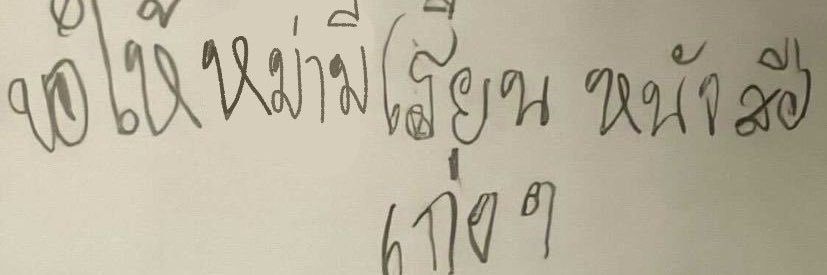 ขอให้หม่ามีเรียน หนังสือ
เก่งๆ